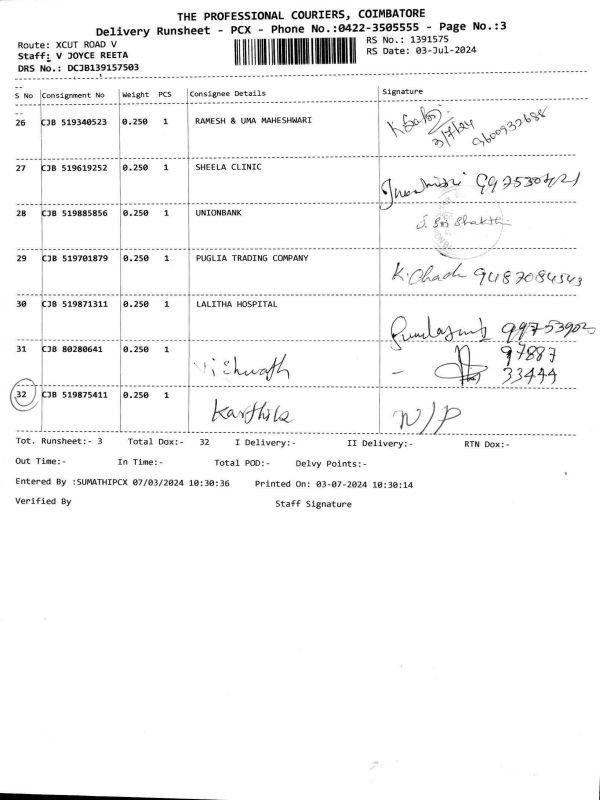 THE PROFESSIONAL COURIERS, COIMBATORE
Delivery Runsheet - PCX - Phone No.:0422-3505555 - Page No.:3
Route: XCUT ROAD V RS No.: 1391575
Staff: V JOYCE REETA RS Date: 03-Jul-2024
DRS No.: DCJB139157503
S No Consignment No Weight PCS Consignee Details Signature
26 CJB 519340523 0.250 1 RAMESH & UMA MAHESHWARI
3/7/24 9600932688
27 CJB 519619252 0.250 1 SHEELA CLINIC
28 CJB 519885856 0.250 1 UNIONBANK
29 CJB 519701879 0.250 1 PUGLIA TRADING COMPANY
9487084543
30 CJB 519871311 0.250 1 LALITHA HOSPITAL
31 CJB 80280641 0.250 1 Vishwath - 97887
33444
32 CJB 519875411 0.250 1 Karthik N/P
Tot. Runsheet:- 3 Total Dox:- 32 I Delivery:- II Delivery:- RTN Dox:-
Out Time:- In Time:- Total POD:- Delvy Points:-
Entered By :SUMATHIPCX 07/03/2024 10:30:36 Printed On: 03-07-2024 10:30:14
Verified By Staff Signature